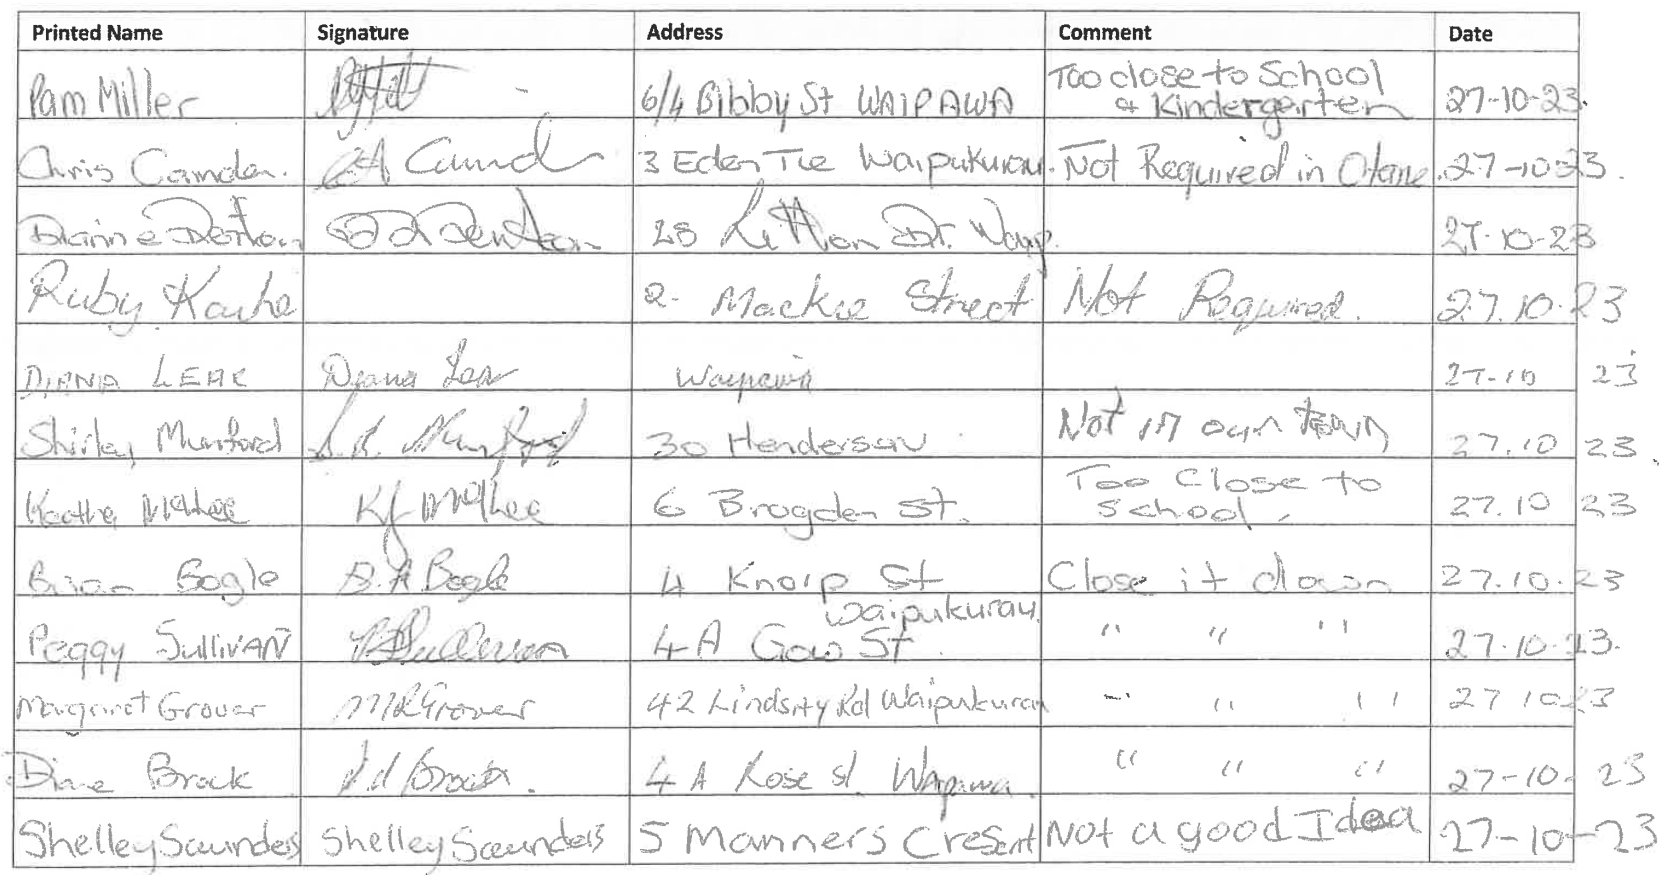 Printed Name Signature Address Comment Date
Pam Miller 6/4 Bibby St WAIPAWA Too close to School & Kindergarten 27-10-23.
Chris Camden. CA Camd 3 Eden Tce Waipukurau. Not Required in Otane. 27-10-23.
Dianne Denton D Denton 28 Litton Dr. Waip. 27-10-23
Ruby 2. Mackie Street Not Required. 27.10.23
DIANA LEAR Diana Lear Waipawa 27-10 23
Shirley Munford S.R. Munford 30 Henderson Not in our town 27.10 23
McPhee KJ McPhee 6 Brogden St. Too Close to School. 27.10 23
Brian Bogle B.A Bogle 4 Knorp St Waipukurau Close it down 27.10.23
Peggy SulliVAN Sullivan 4A Gow St. " " " 27.10.23.
Margaret Grover M R Grover 42 Lindsay Rd Waipukurau " " " 27 10 23
Diane Brock Brock. 4 A Rose st. Waipawa. " " " 27-10- 23
Shelley Saunders Shelley Saunders 5 Manners Cresent Not a good Idea 27-10-23